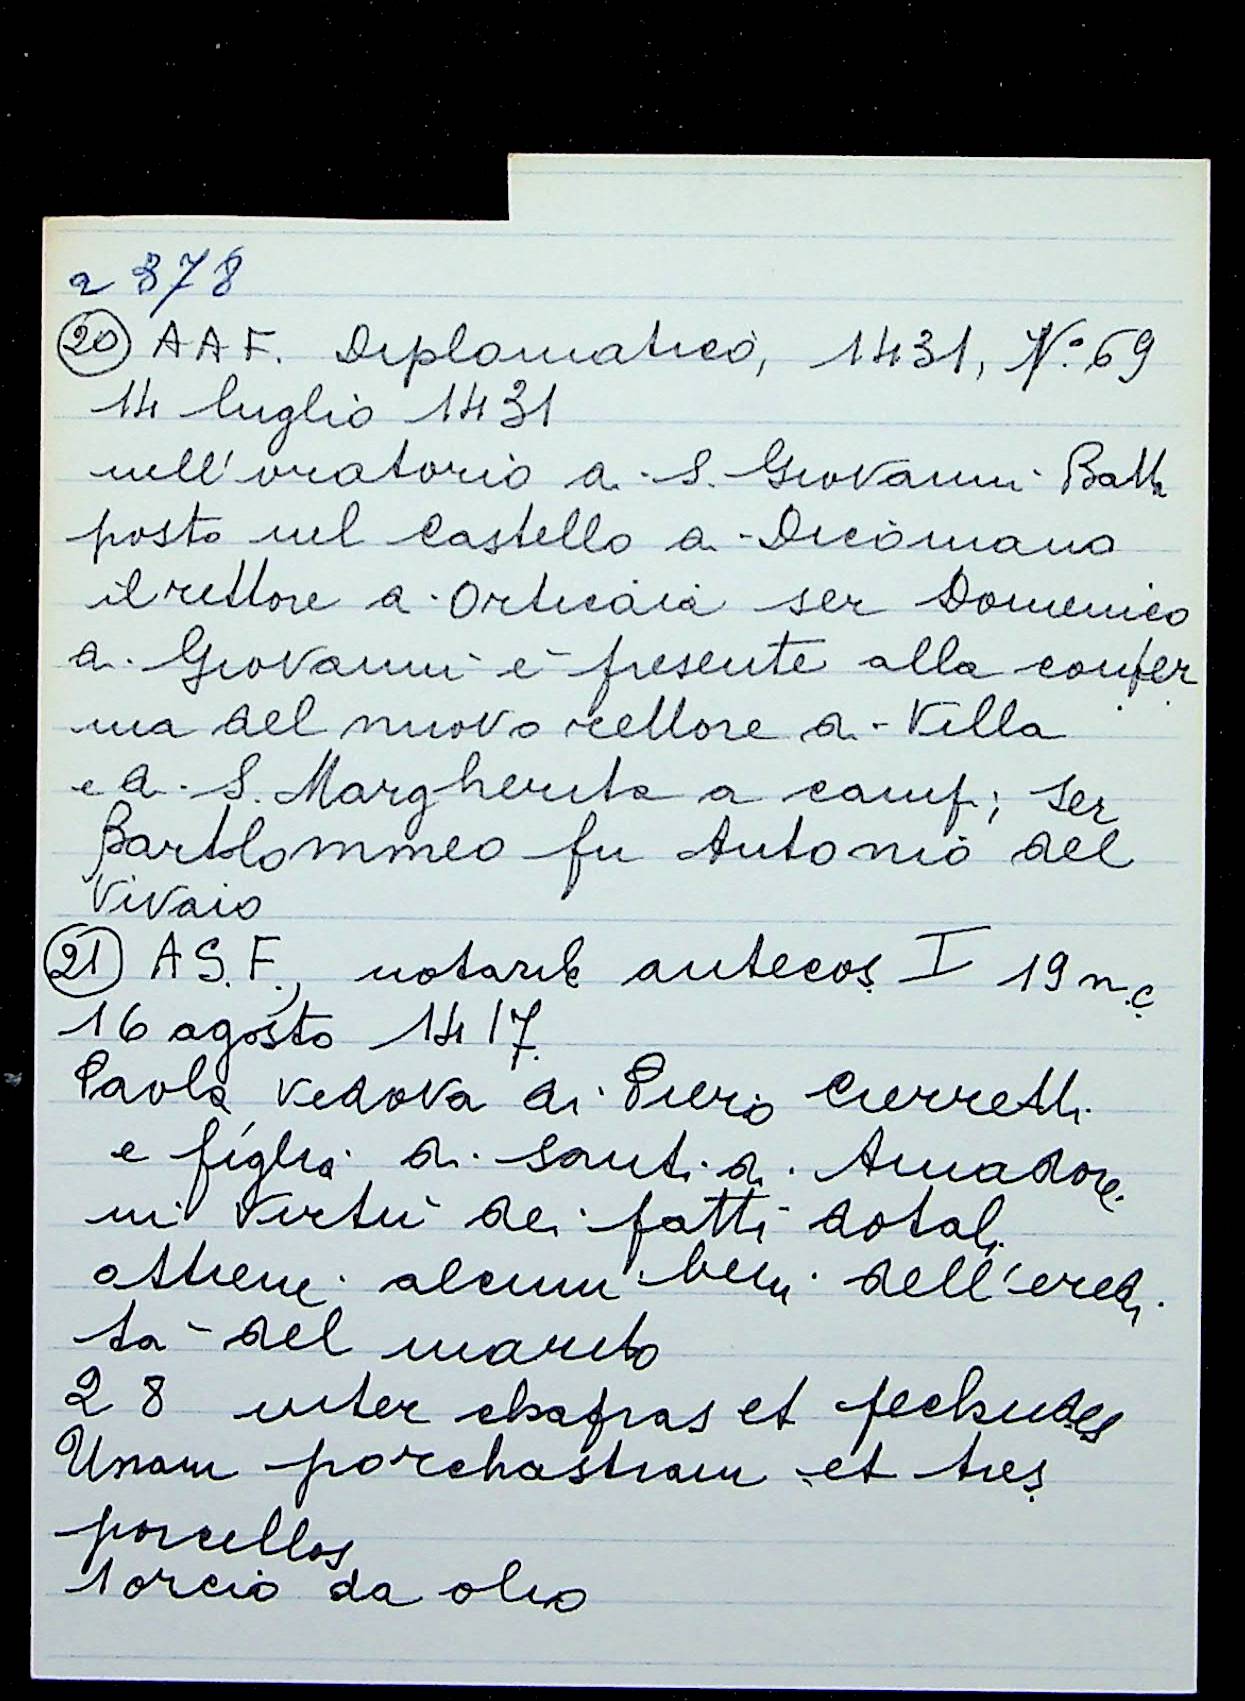 a 378
20 AAF. Diplomatico, 1431, N.º 69
14 luglio 1431
nell'oratorio di S. Giovanni Batta
posto nel castello di Dicomano
il rettore di Orticaia ser Domenico
di Giovanni è presente alla confer
ma del nuovo rettore di Villa
e di S. Margherita a camp; ser
Bartolommeo fu Antonio del
Vivaio
21 A.S.F., notarile antecos. I 19 n.c
16 agosto 1417.
Paola vedova di Piero Cierretti
e figlia di Santi di Amadore
in virtù dei patti dotali
ottiene alcuni beni dell'eredi
tà del marito
28 inter chapras et pechudes
Unam porchastram et tres
porcellos
1 orcio da olio